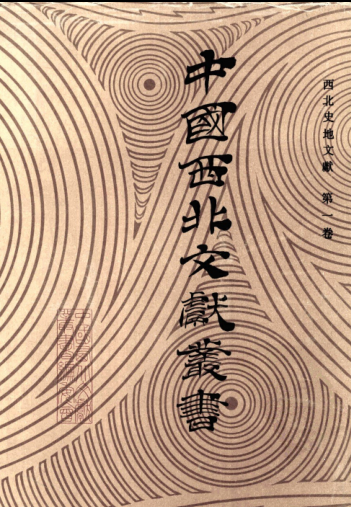 西北史地文獻 第一卷
中國西北文獻叢書